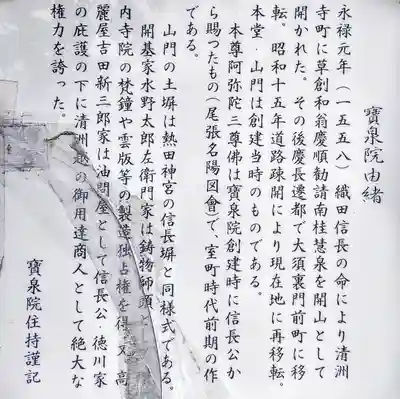 寶泉院由緒
永禄元年（一五五八）織田信長の命により清洲
寺町に草創和翁慶順勧請南桂慧泉を開山として
開かれた。その後慶長遷都で大須裏門前町に移
転。昭和十五年道路疎開により現在地に再移転。
本堂・山門は創建当時のものである。
本尊阿弥陀三尊佛は寶泉院創建時に信長公か
ら賜つたもの（尾張名陽図會）で、室町時代前期の作
である。
山門の土塀は熱田神宮の信長塀と同様式である。
開基家水野太郎左衛門家は鋳物師頭と
内寺院の梵鐘や雲版等の製造独占権を得
麗屋吉田新三郎家は油問屋として信長公・徳川家
の庇護の下に清洲越の御用達商人として絶大な
権力を誇った。
寶泉院住持謹記